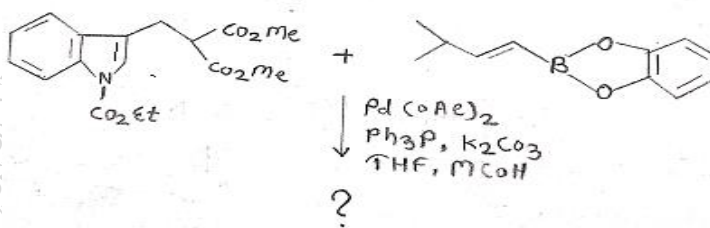 CO2Me
CO2Me
N
CO2Et
+
B
O
O
Pd(OAc)2
Ph3P, K2CO3
THF, MCOH
?